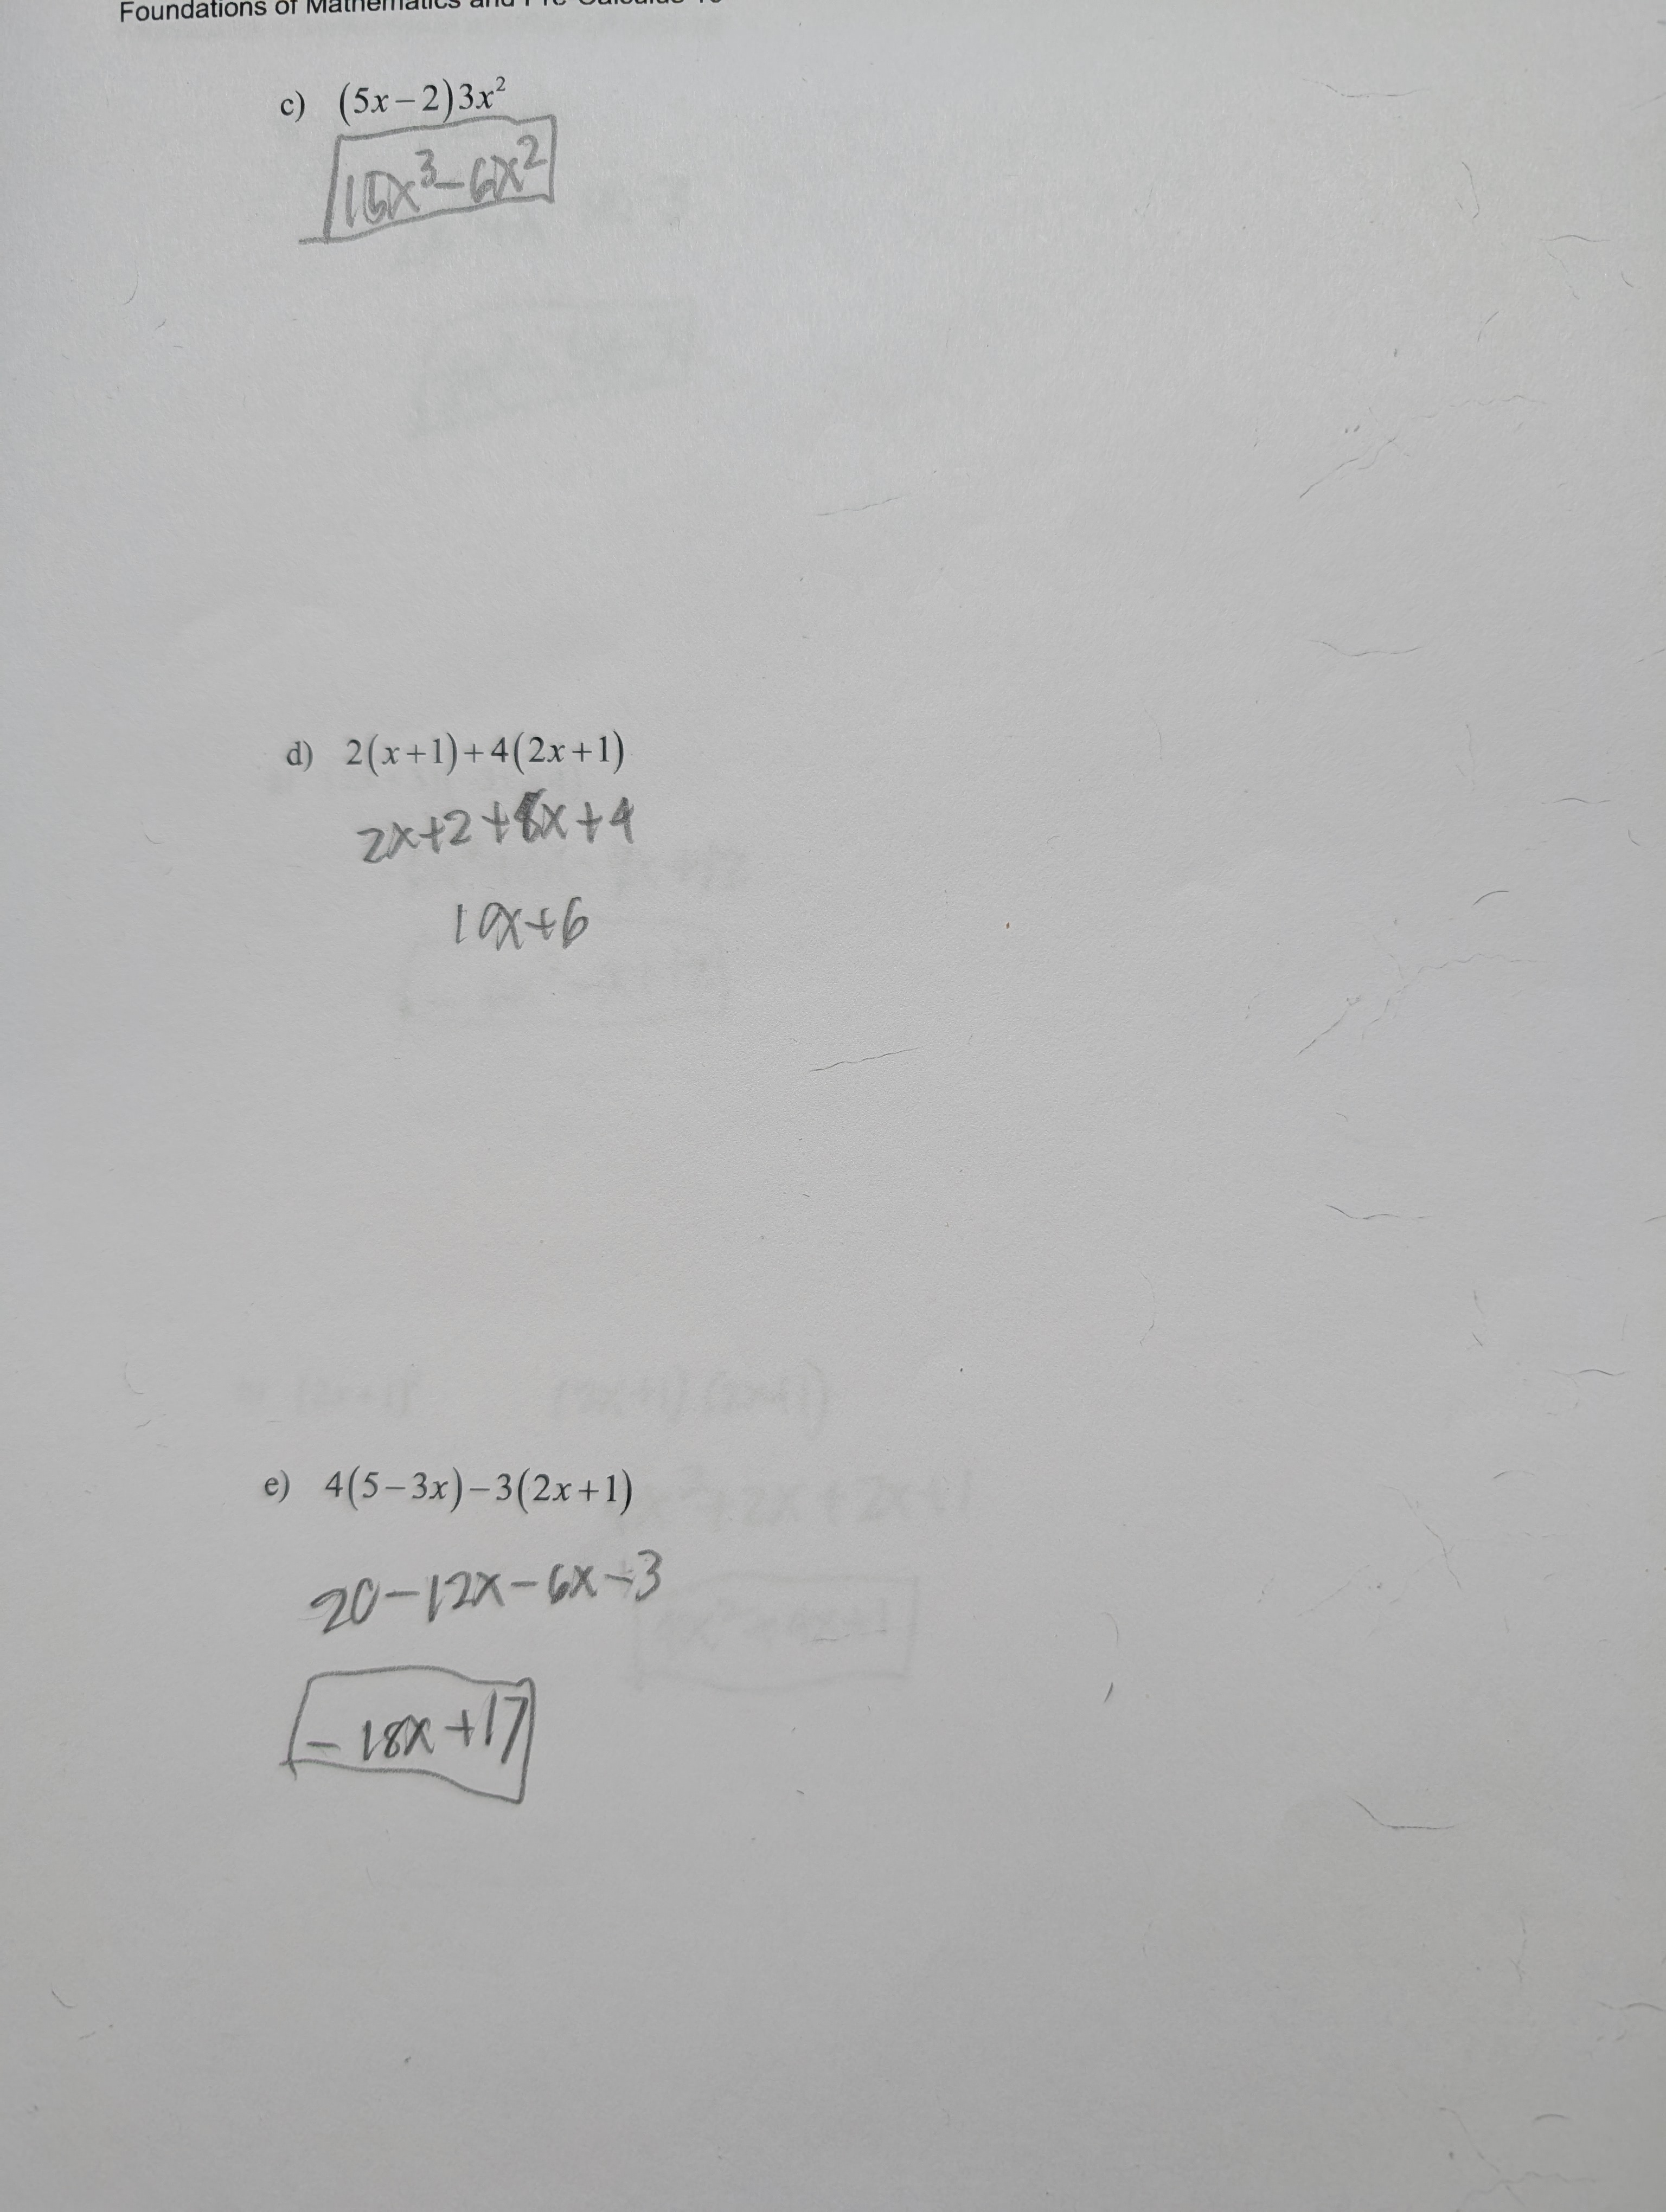 Foundations of Mathematics and Pre-Calculus 10
c) (5x−2)3x²
15x³−6x²
d) 2(x+1)+4(2x+1)
2x+2+8x+4
10x+6
e) 4(5−3x)−3(2x+1)
20−12x−6x−3
−18x+17